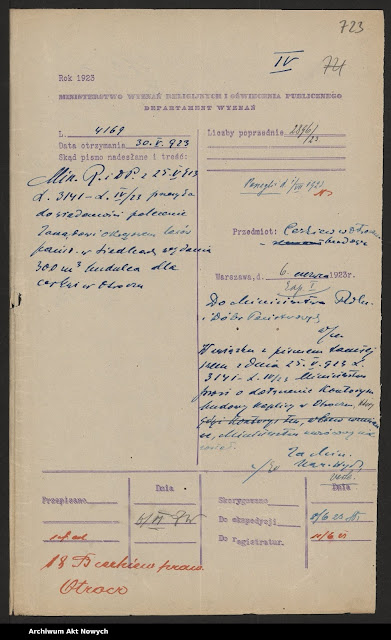 723
IV
74
Rok 1923
MINISTERSTWO WYZNAŃ RELIGIJNYCH I OŚWIECENIA PUBLICZNEGO
DEPARTAMENT WYZNAŃ
L. 4169
Data otrzymania 30.V.923
Skąd pismo nadesłane i treść:
Min. R. i D.P. z 25.V.923
L. 3141-L.IV/23 przesyła
do wiadomości polecenie
Zarządowi Okręgowemu lasów
państw. w Siedlcach wydania
300 m³ budulca dla
cerkwi w Otroczu
Liczby poprzednie 2896/23
Przedmiot: Cerkiew w Otroczu
budowa
Warszawa, d. 6 czerwca 1923r.
Do Ministerstwa Roln.
i Dóbr Państwowych
w/m.
W związku z pismem tamtej-
szem z dnia 25.V.923 L.
3141-L.IV/23 Ministerstwo
prosi o dołączenie kosztorysu
budowy kaplicy w Otroczu,
Za Min.
Nacz. Wydz.
Przepisano
Dnia
Skorygowano
Do ekspedycji
Do registratur.
Dnia
18 B cerkiew praw.
Otrocz
Archiwum Akt Nowych